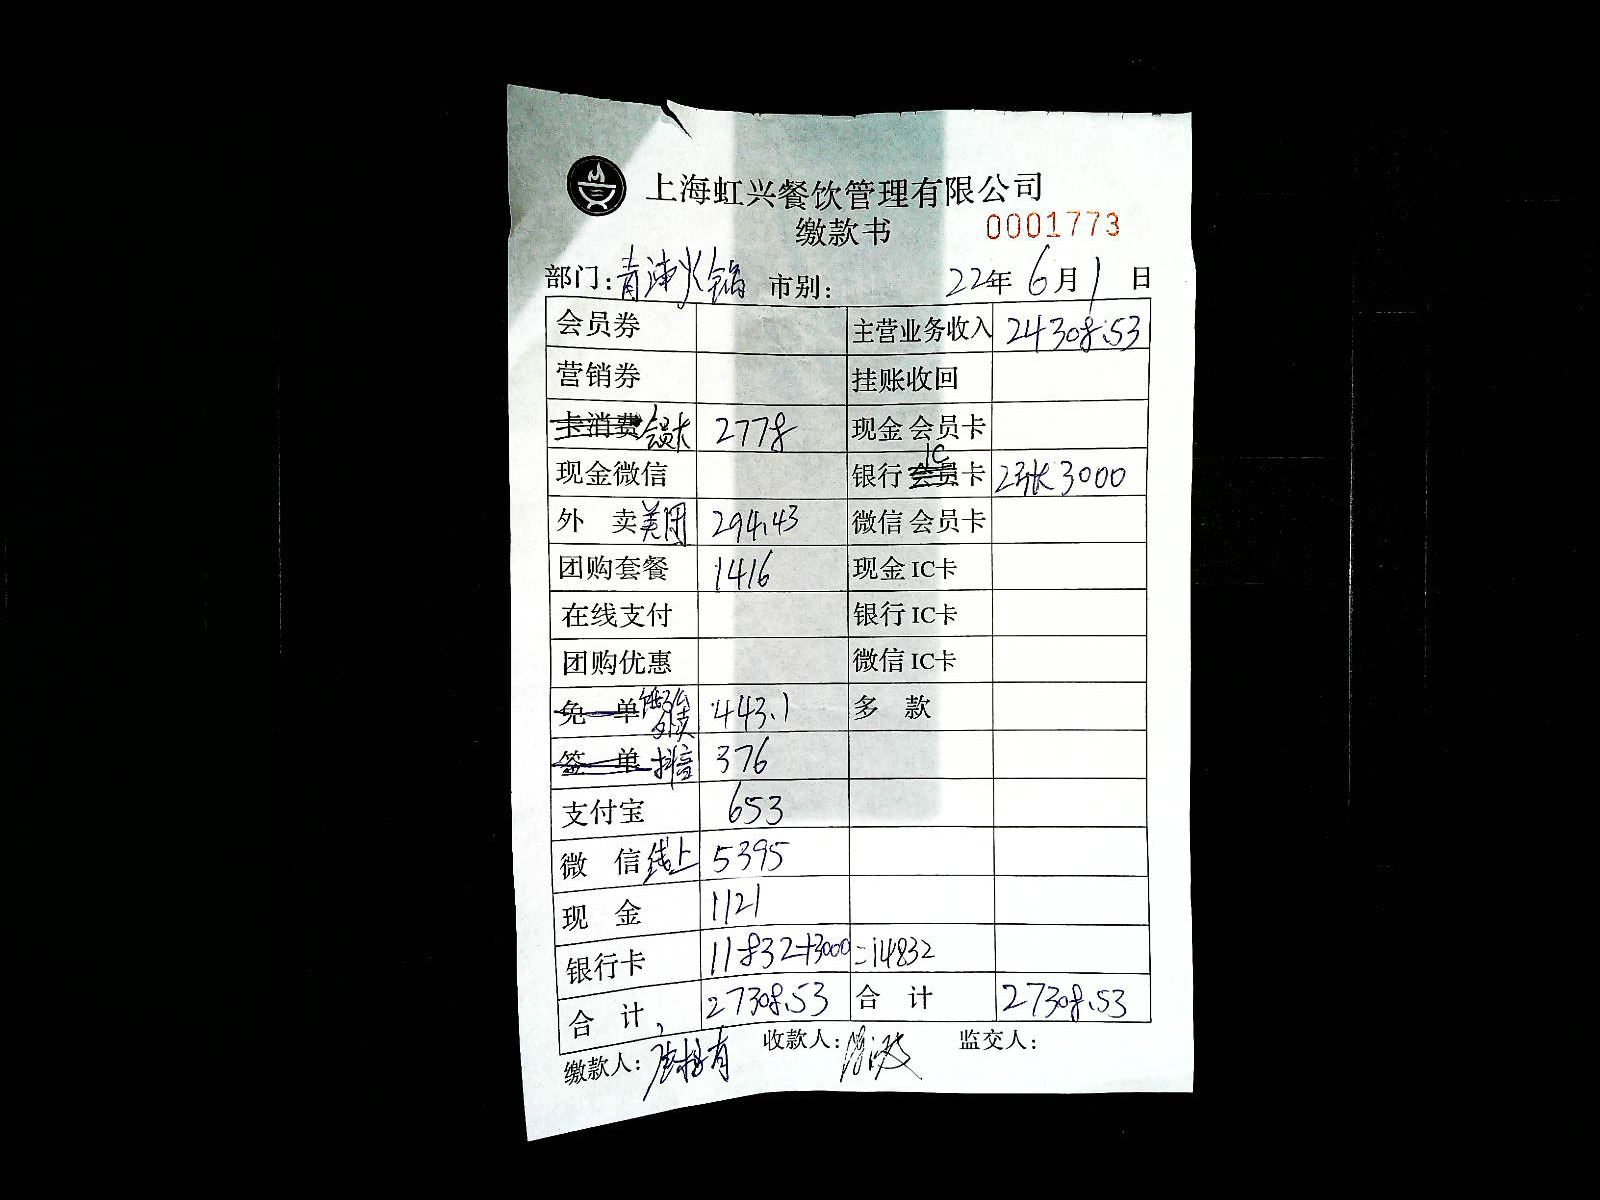 上海虹兴餐饮管理有限公司
缴款书 0001773
部门：青浦火锅 市别： 22年 6月 1日
会员券 主营业务收入 24308.53
营销券 挂账收回
卡消费 会员卡 2778 现金 会员卡
现金微信 银行 会员 IC 卡 2张 3000
外 卖 美团 294.43 微信 会员卡
团购套餐 1416 现金 IC卡
在线支付 银行 IC卡
团购优惠 微信 IC卡
免 单 外卖 443.1 多 款
签 单 抖音 376
支付宝 653
微 信 线上 5395
现 金 1121
银行卡 11832+3000=14832
合 计 27308.53 合 计 27308.53
缴款人： 收款人： 监交人：